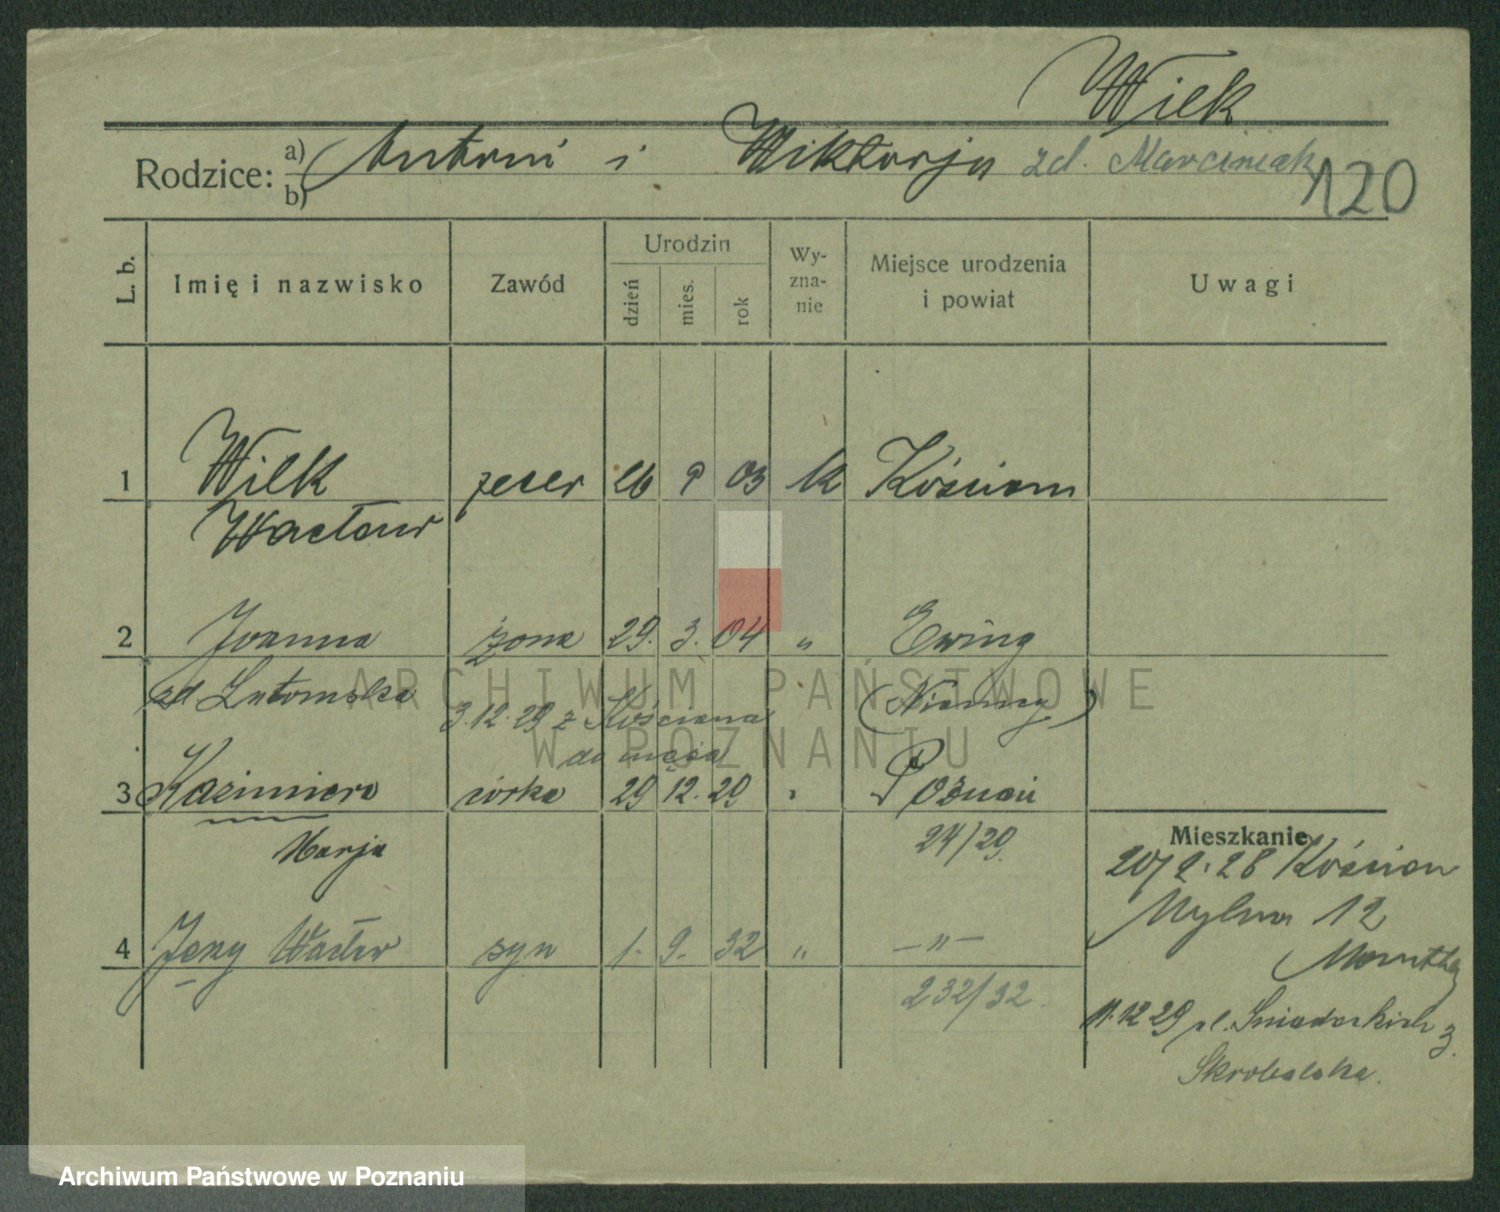 Wilk
Rodzice: a) b) Antoni i Wiktorja zd. Marciniak
120
L. b. Imię i nazwisko Zawód Urodzin dzień mies. rok Wy-zna-nie Miejsce urodzenia i powiat Uwagi
1 Wilk zecer 26 9 03 k Kościan
Wacław
2 Joanna żona 29. 3. 04 " Ewing
zd Lutomska (Niemcy)
3.12.29 z Kościana
do męża
3 Kazimiera córka 29 12. 29 " Poznań
Marja 24/29.
4 Jerzy Wacław syn 1. 9. 32 " —"—
232/32.
Mieszkanie
20/2.28 Kościan
Mylna 12
11.12.29 pl. Śniadeckich 3.
ARCHIWUM PAŃSTWOWE
W POZNANIU
Archiwum Państwowe w Poznaniu